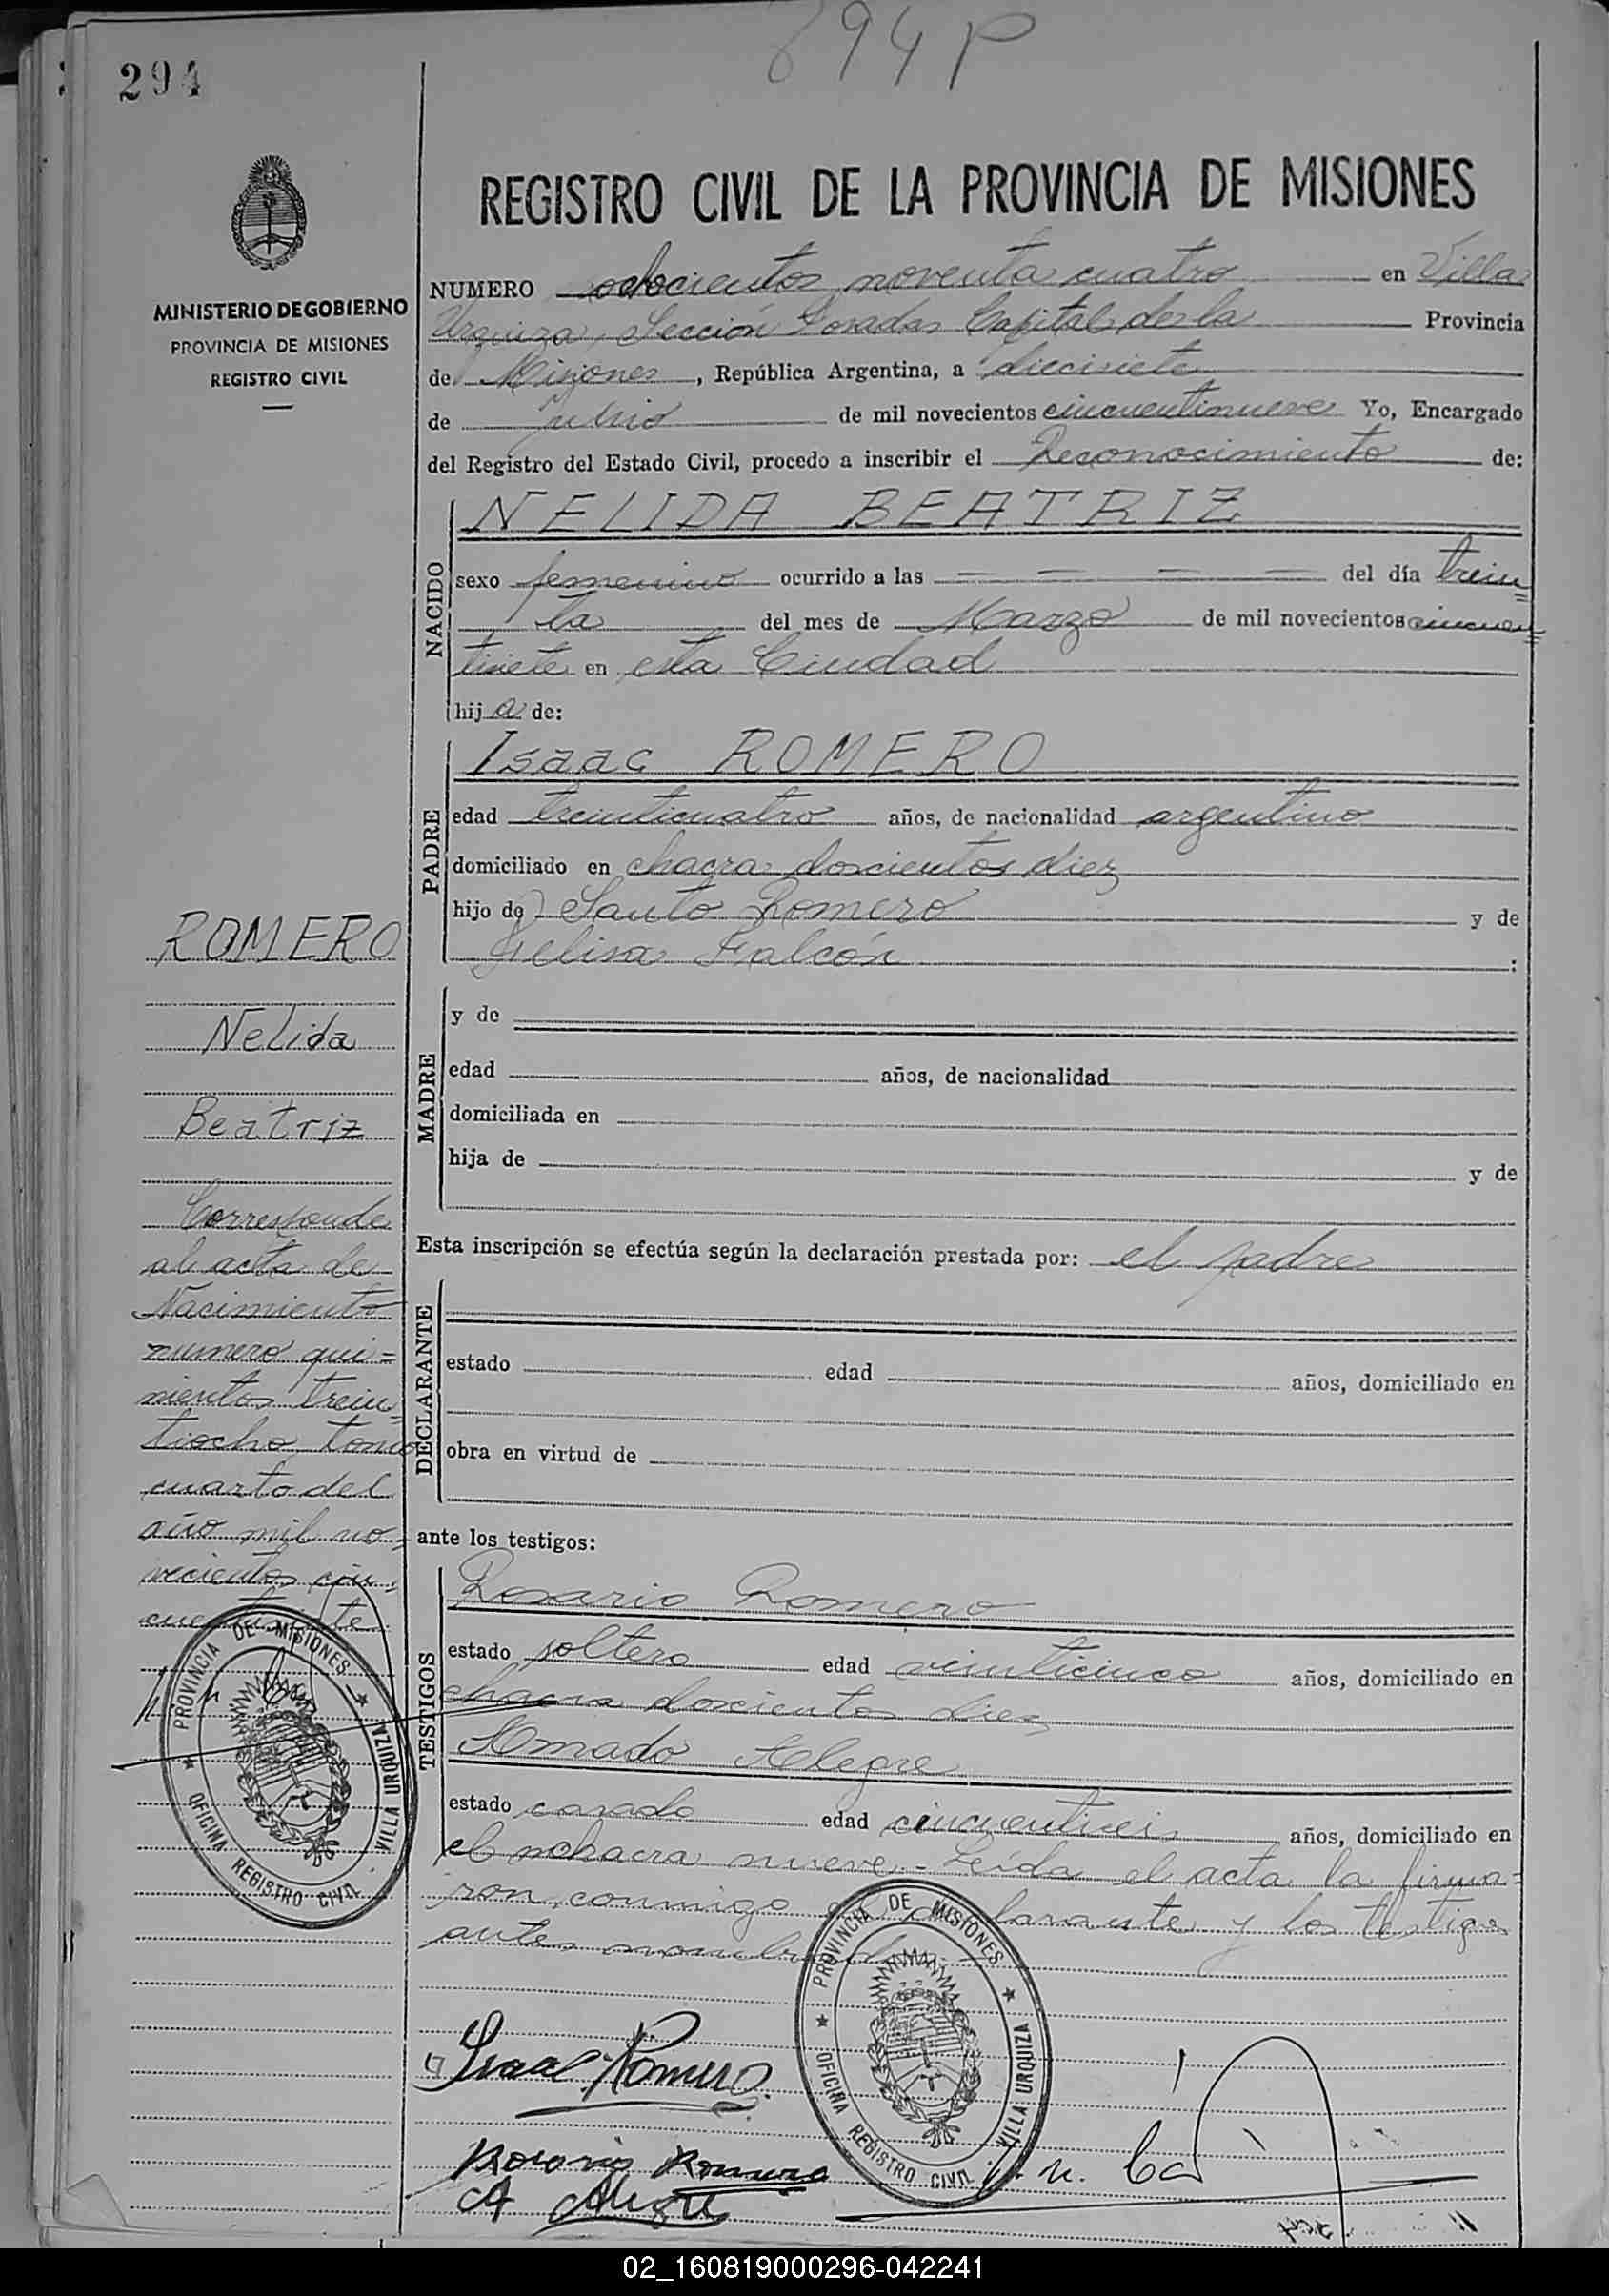 894 P
294
REGISTRO CIVIL DE LA PROVINCIA DE MISIONES
MINISTERIO DE GOBIERNO
PROVINCIA DE MISIONES
REGISTRO CIVIL
NUMERO ochocientos noventa cuatro en Villa
Urquiza, Sección Posadas Capital de la Provincia
de Misiones, República Argentina, a diecisiete
de julio de mil novecientos cincuentinueve Yo, Encargado
del Registro del Estado Civil, procedo a inscribir el Reconocimiento de:
NACIDO
NELIDA BEATRIZ
sexo femenino ocurrido a las — — — — del día trein=
ta del mes de Marzo de mil novecientos cincuen=
tisiete en esta Ciudad
hija de:
PADRE
Isaac ROMERO
edad treinticuatro años, de nacionalidad argentino
domiciliado en chacra doscientos diez
hijo de Santo Romero y de
Felisa Falcón :
MADRE
y de
edad años, de nacionalidad
domiciliada en
hija de y de
Esta inscripción se efectúa según la declaración prestada por: el padre
DECLARANTE
estado edad años, domiciliado en
obra en virtud de
ante los testigos:
TESTIGOS
Rosario Romero
estado soltero edad veinticinco años, domiciliado en
chacra doscientos diez
Amado Alegre
estado casado edad cincuentiseis años, domiciliado en
chacra nueve.- Leída el acta la firma=
ron conmigo el declarante y los testigos
antes
ROMERO
Nelida
Beatriz
Corresponde
al acta de
Nacimiento
numero qui=
nientos trein=
tiocho tomo
cuarto del
año mil no=
vecientos cin=
cuentisiete
PROVINCIA DE MISIONES
OFICINA REGISTRO CIVIL
VILLA URQUIZA
PROVINCIA DE MISIONES
OFICINA REGISTRO CIVIL
VILLA URQUIZA
Isaac Romero
Rosario Romero
A Alegre
02_160819000296-042241